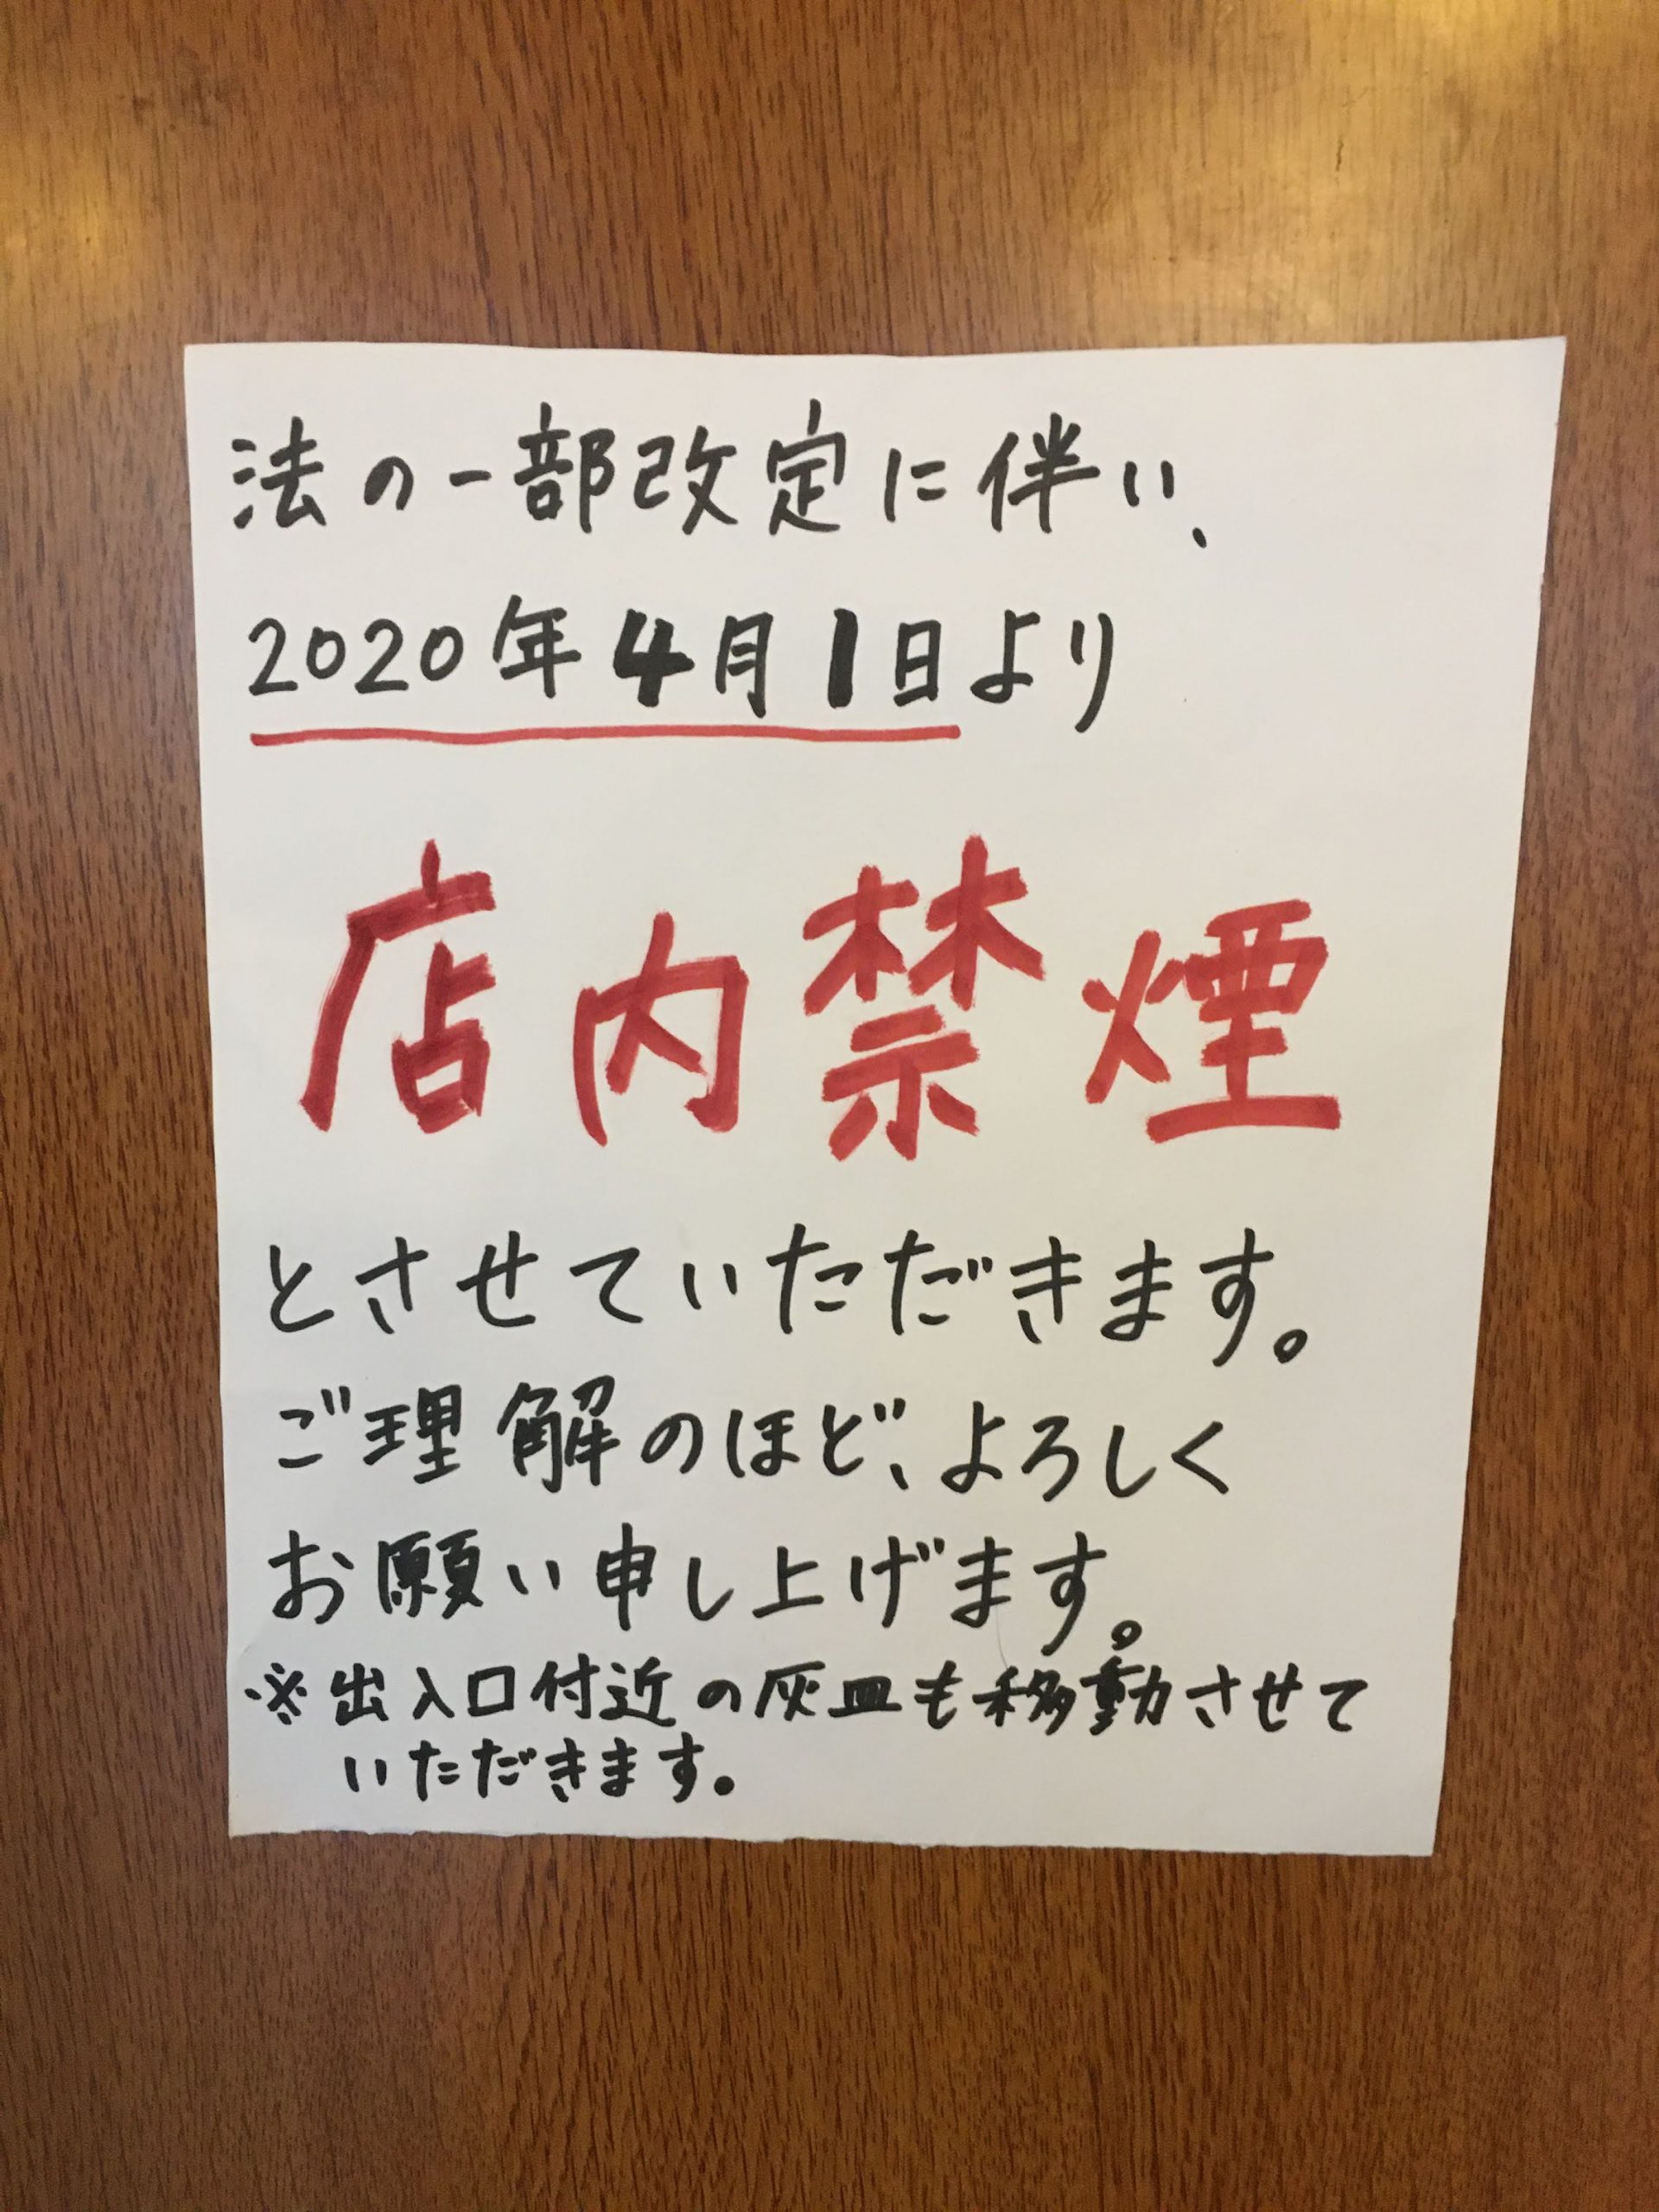 法の一部改定に伴い、
2020年4月1日より
店内禁煙
とさせていただきます。
ご理解のほど、よろしく
お願い申し上げます。
※出入口付近の灰皿も移動させて
いただきます。